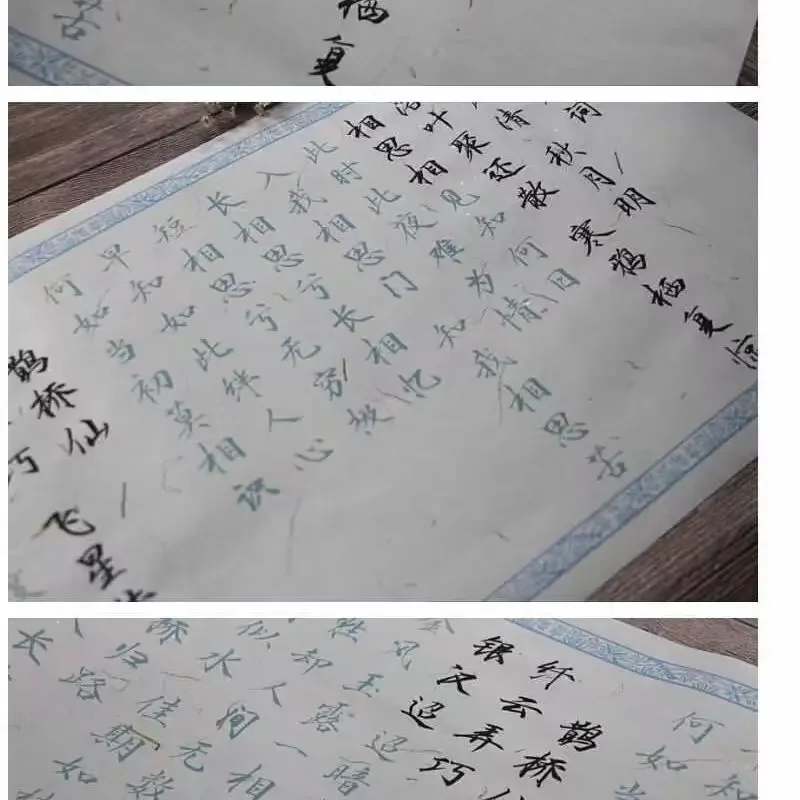 苦
栖复
词
清秋月明
落叶聚还散寒鸦栖复惊
相思相见知何日
此时此夜难为情
入我相思门知我相思苦
长相思兮长相忆
短相思兮无穷极
早知如此绊人心
何如当初莫相识
鹊桥仙
巧飞星
知
何如
鹊桥
纤云弄巧
银汉迢迢暗
风玉露一相
胜却人间无数
似水佳期如
归路
长